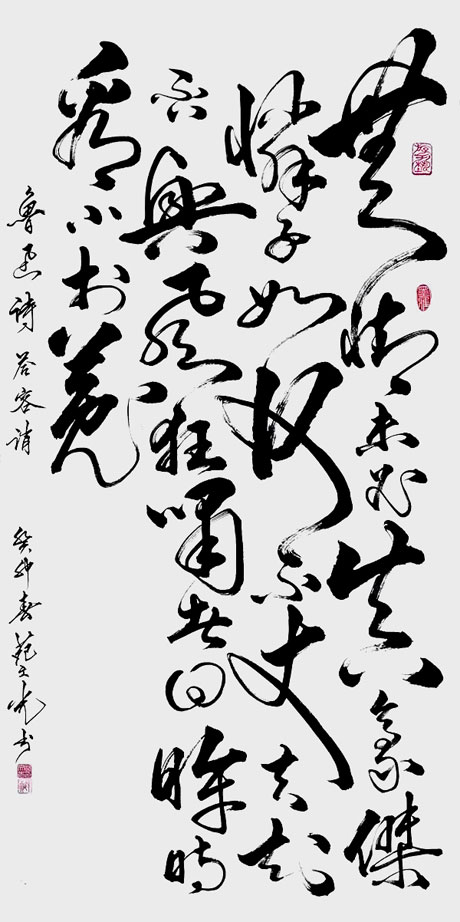 無情未必真豪傑
憐子如何不丈夫知
否興風狂嘯者回眸時
看小於菟
魯迅詩答客誚
春范书